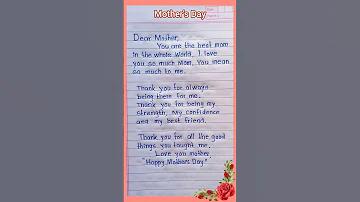 Mother's Day
Dear Mother,
You are the best mom
in the whole World. I love
you so much Mom. You mean
so much to me.
Thank you for always
being there for me.
Thank you for being my
strength, my confidence
and my best friend.
Thank you for all the good
things you taught me.
Love you mother,
"Happy Mothers Day".